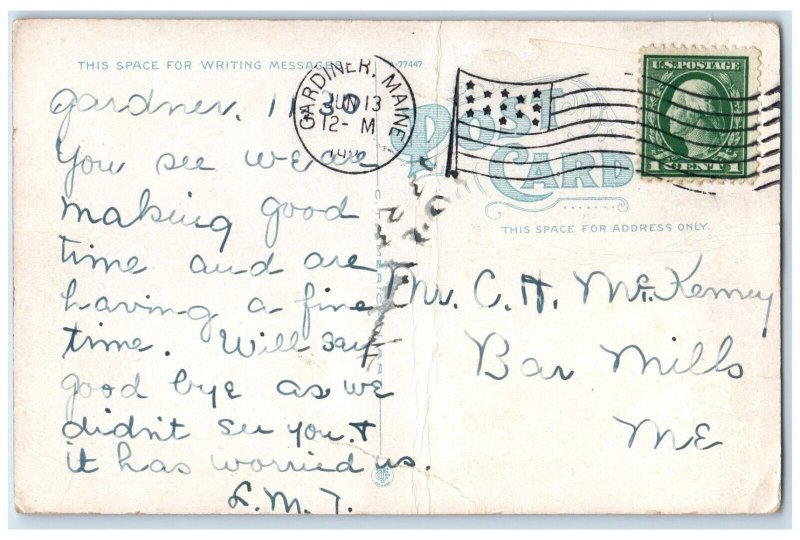 THIS SPACE FOR WRITING MESSAGES
77447
GARDINER, MAINE
JUN 13
12- M
U.S. POSTAGE
1 CENT 1
POST CARD
THIS SPACE FOR ADDRESS ONLY.
gardner, 11.30
You see we are
making good
time and are
having a fine
time. Will say
good bye as we
didn't see you &
it has worried us.
L.M.T.
Mr. C. H. McKenney
Bar Mills
ME